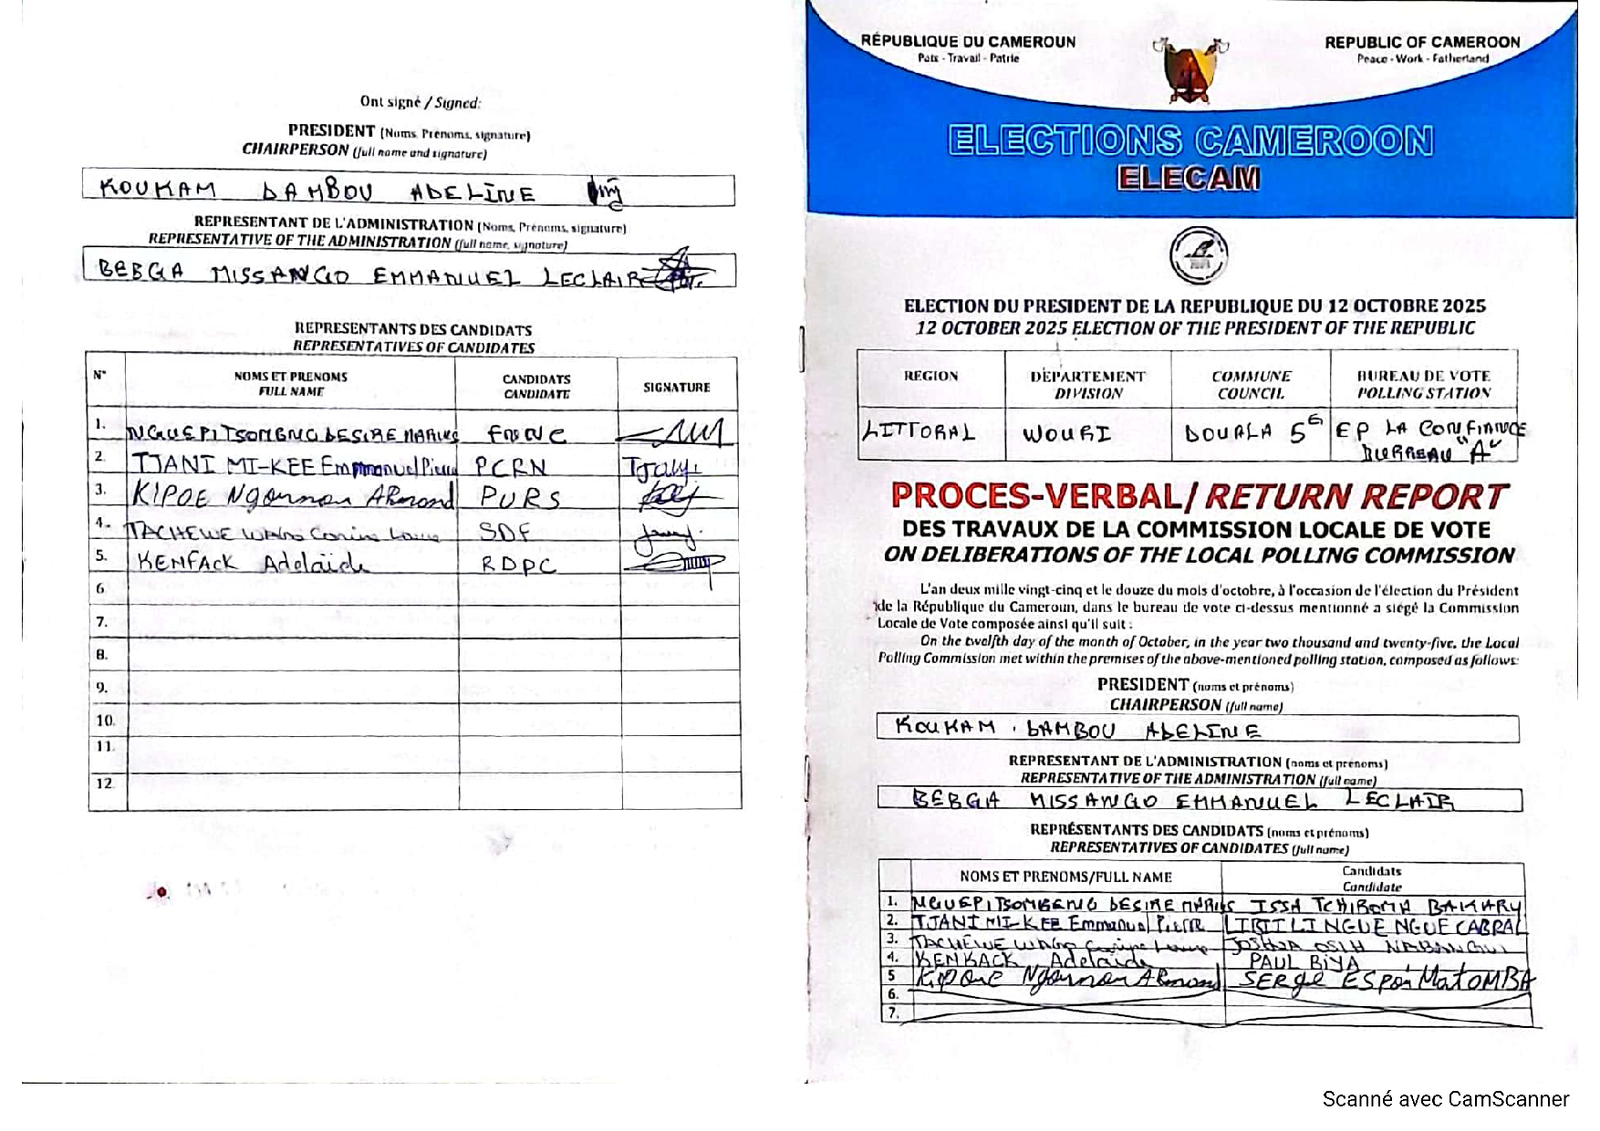 Ont signé / Signed:
PRESIDENT (Noms, Prénoms, signature)
CHAIRPERSON (full name and signature)
KOUKAM DAMBOU ADELINE
REPRESENTANT DE L'ADMINISTRATION (Noms, Prénoms, signature)
REPRESENTATIVE OF THE ADMINISTRATION (full name, signature)
BEBGA MISSANGO EMMANUEL LECLAIR
REPRESENTANTS DES CANDIDATS
REPRESENTATIVES OF CANDIDATES
N° NOMS ET PRENOMS FULL NAME CANDIDATS CANDIDATE SIGNATURE
1. NGUEPI TSOMBENG DESIRE MARIUS FNNC
2. TJANI MI-KEE Emmanuel Pierre PCRN
3. KIPOE Ngounou Armond PURS
4. TACHEWE Carine Laure SDF
5. KENFACK Adelaïde RDPC
6
7.
8.
9.
10.
11.
12
RÉPUBLIQUE DU CAMEROUN
Paix - Travail - Patrie
REPUBLIC OF CAMEROON
Peace - Work - Fatherland
ELECTIONS CAMEROON
ELECAM
ELECTION DU PRESIDENT DE LA REPUBLIQUE DU 12 OCTOBRE 2025
12 OCTOBER 2025 ELECTION OF THE PRESIDENT OF THE REPUBLIC
REGION DÉPARTEMENT DIVISION COMMUNE COUNCIL BUREAU DE VOTE POLLING STATION
LITTORAL WOURI DOUALA 5E EP LA CONFIANCE
BUREAU "A"
PROCES-VERBAL/ RETURN REPORT
DES TRAVAUX DE LA COMMISSION LOCALE DE VOTE
ON DELIBERATIONS OF THE LOCAL POLLING COMMISSION
L'an deux mille vingt-cinq et le douze du mois d'octobre, à l'occasion de l'élection du Président
de la République du Cameroun, dans le bureau de vote ci-dessus mentionné a siégé la Commission
Locale de Vote composée ainsi qu'il suit :
On the twelfth day of the month of October, in the year two thousand and twenty-five, the Local
Polling Commission met within the premises of the above-mentioned polling station, composed as follows:
PRESIDENT (noms et prénoms)
CHAIRPERSON (full name)
KOUKAM DAMBOU ADELINE
REPRESENTANT DE L'ADMINISTRATION (noms et prénoms)
REPRESENTATIVE OF THE ADMINISTRATION (full name)
BEBGA MISSANGO EMMANUEL LECLAIR
REPRÉSENTANTS DES CANDIDATS (noms et prénoms)
REPRESENTATIVES OF CANDIDATES (full name)
NOMS ET PRENOMS/FULL NAME Candidats Candidate
1. NGUEPI TSOMBENG DESIRE MARIUS ISSA TCHIROMA BAKARY
2. TJANI MI-KEE Emmanuel Pierre LIBII LI NGUE NGUE CABRAL
3. TACHEWE Carine Laure JOSHUA OSIH NABANGI
4. KENKACK Adelaïde PAUL BIYA
5 Kipoue Ngounou Armond SERGE ESPOIR MATOMBA
6.
7.
Scanné avec CamScanner